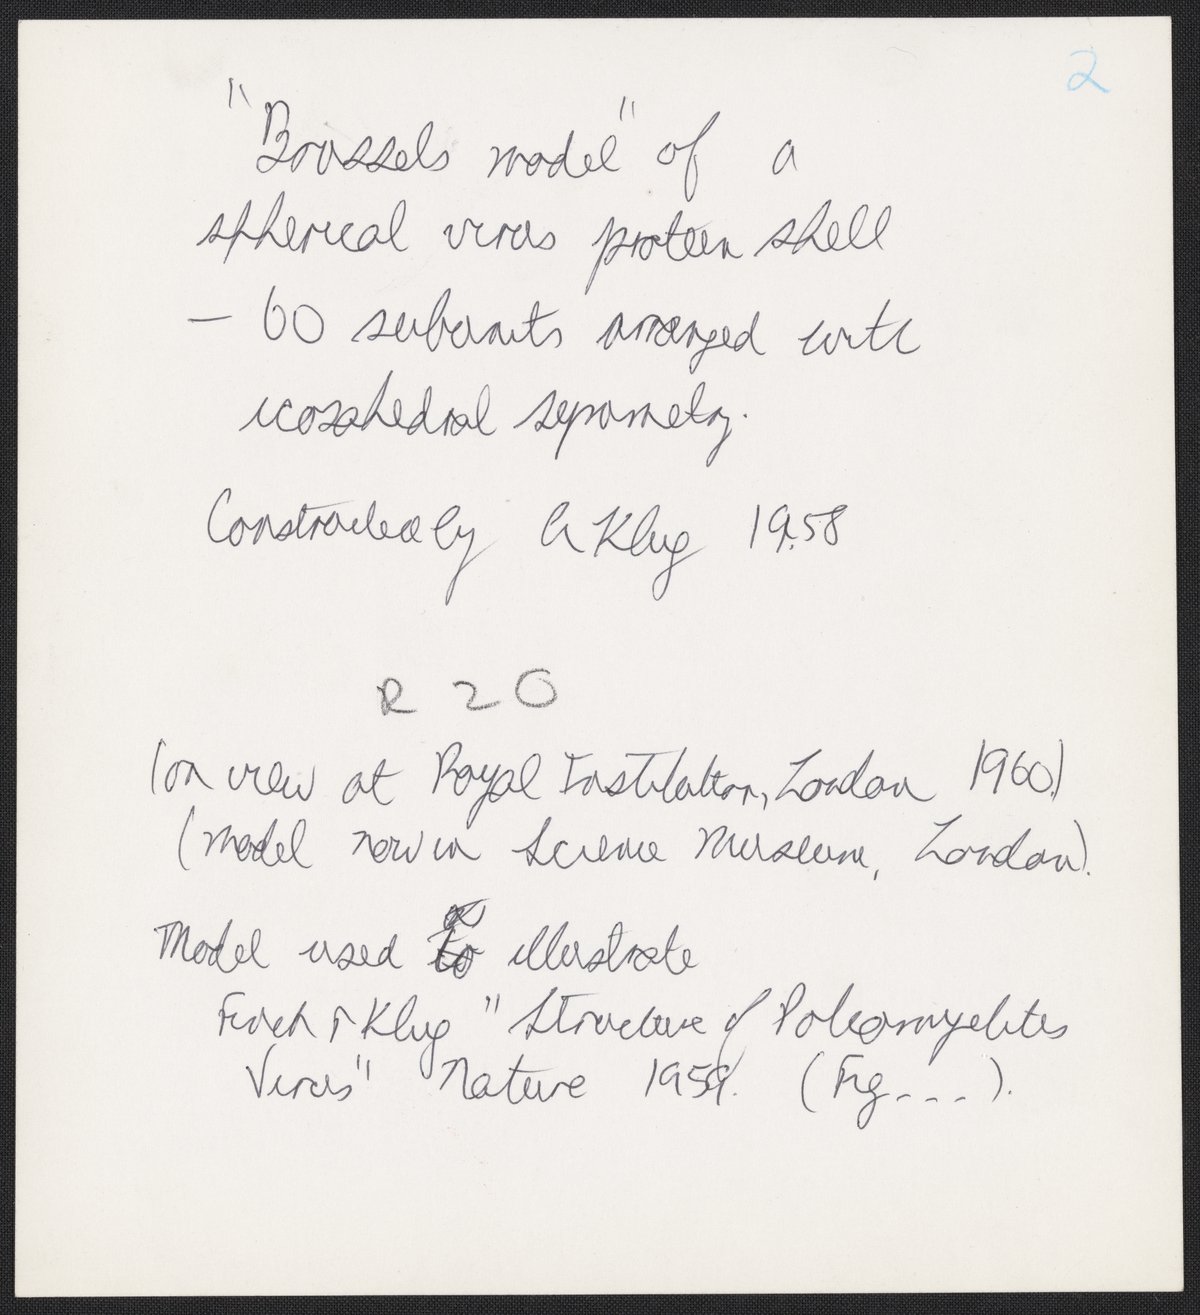 2
"Brussels model" of a
spherical virus protein shell
- 60 subunits arranged with
icosahedral symmetry.
Constructed by A Klug 1958
R 20
(on view at Royal Institution, London 1960)
(Model now in Science Museum, London).
Model used to illustrate
Finch & Klug "Structure of Poliomyelitis
Virus" Nature 1959. (Fig ---).